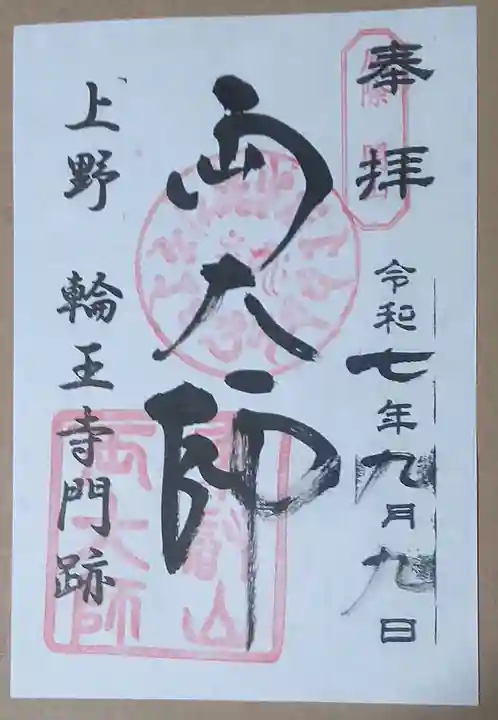 奉拝
令和七年九月九日
両大師
上野 輪王寺門跡
両大師